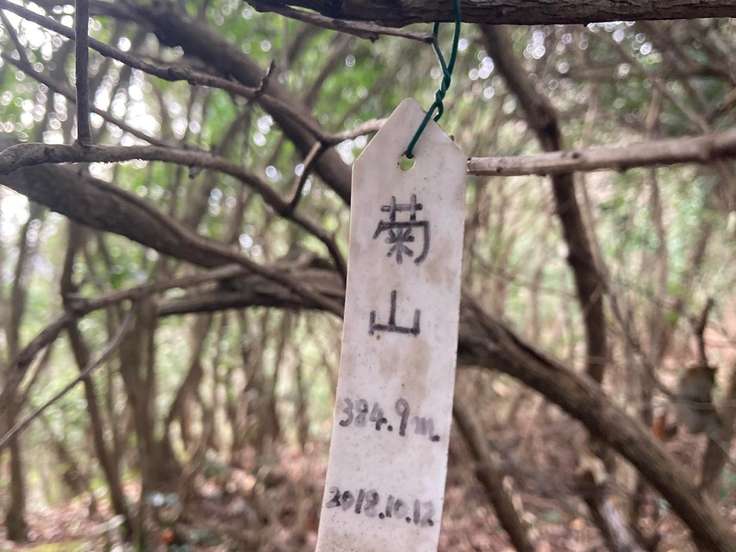 菊
山
384.9m
2018.10.12